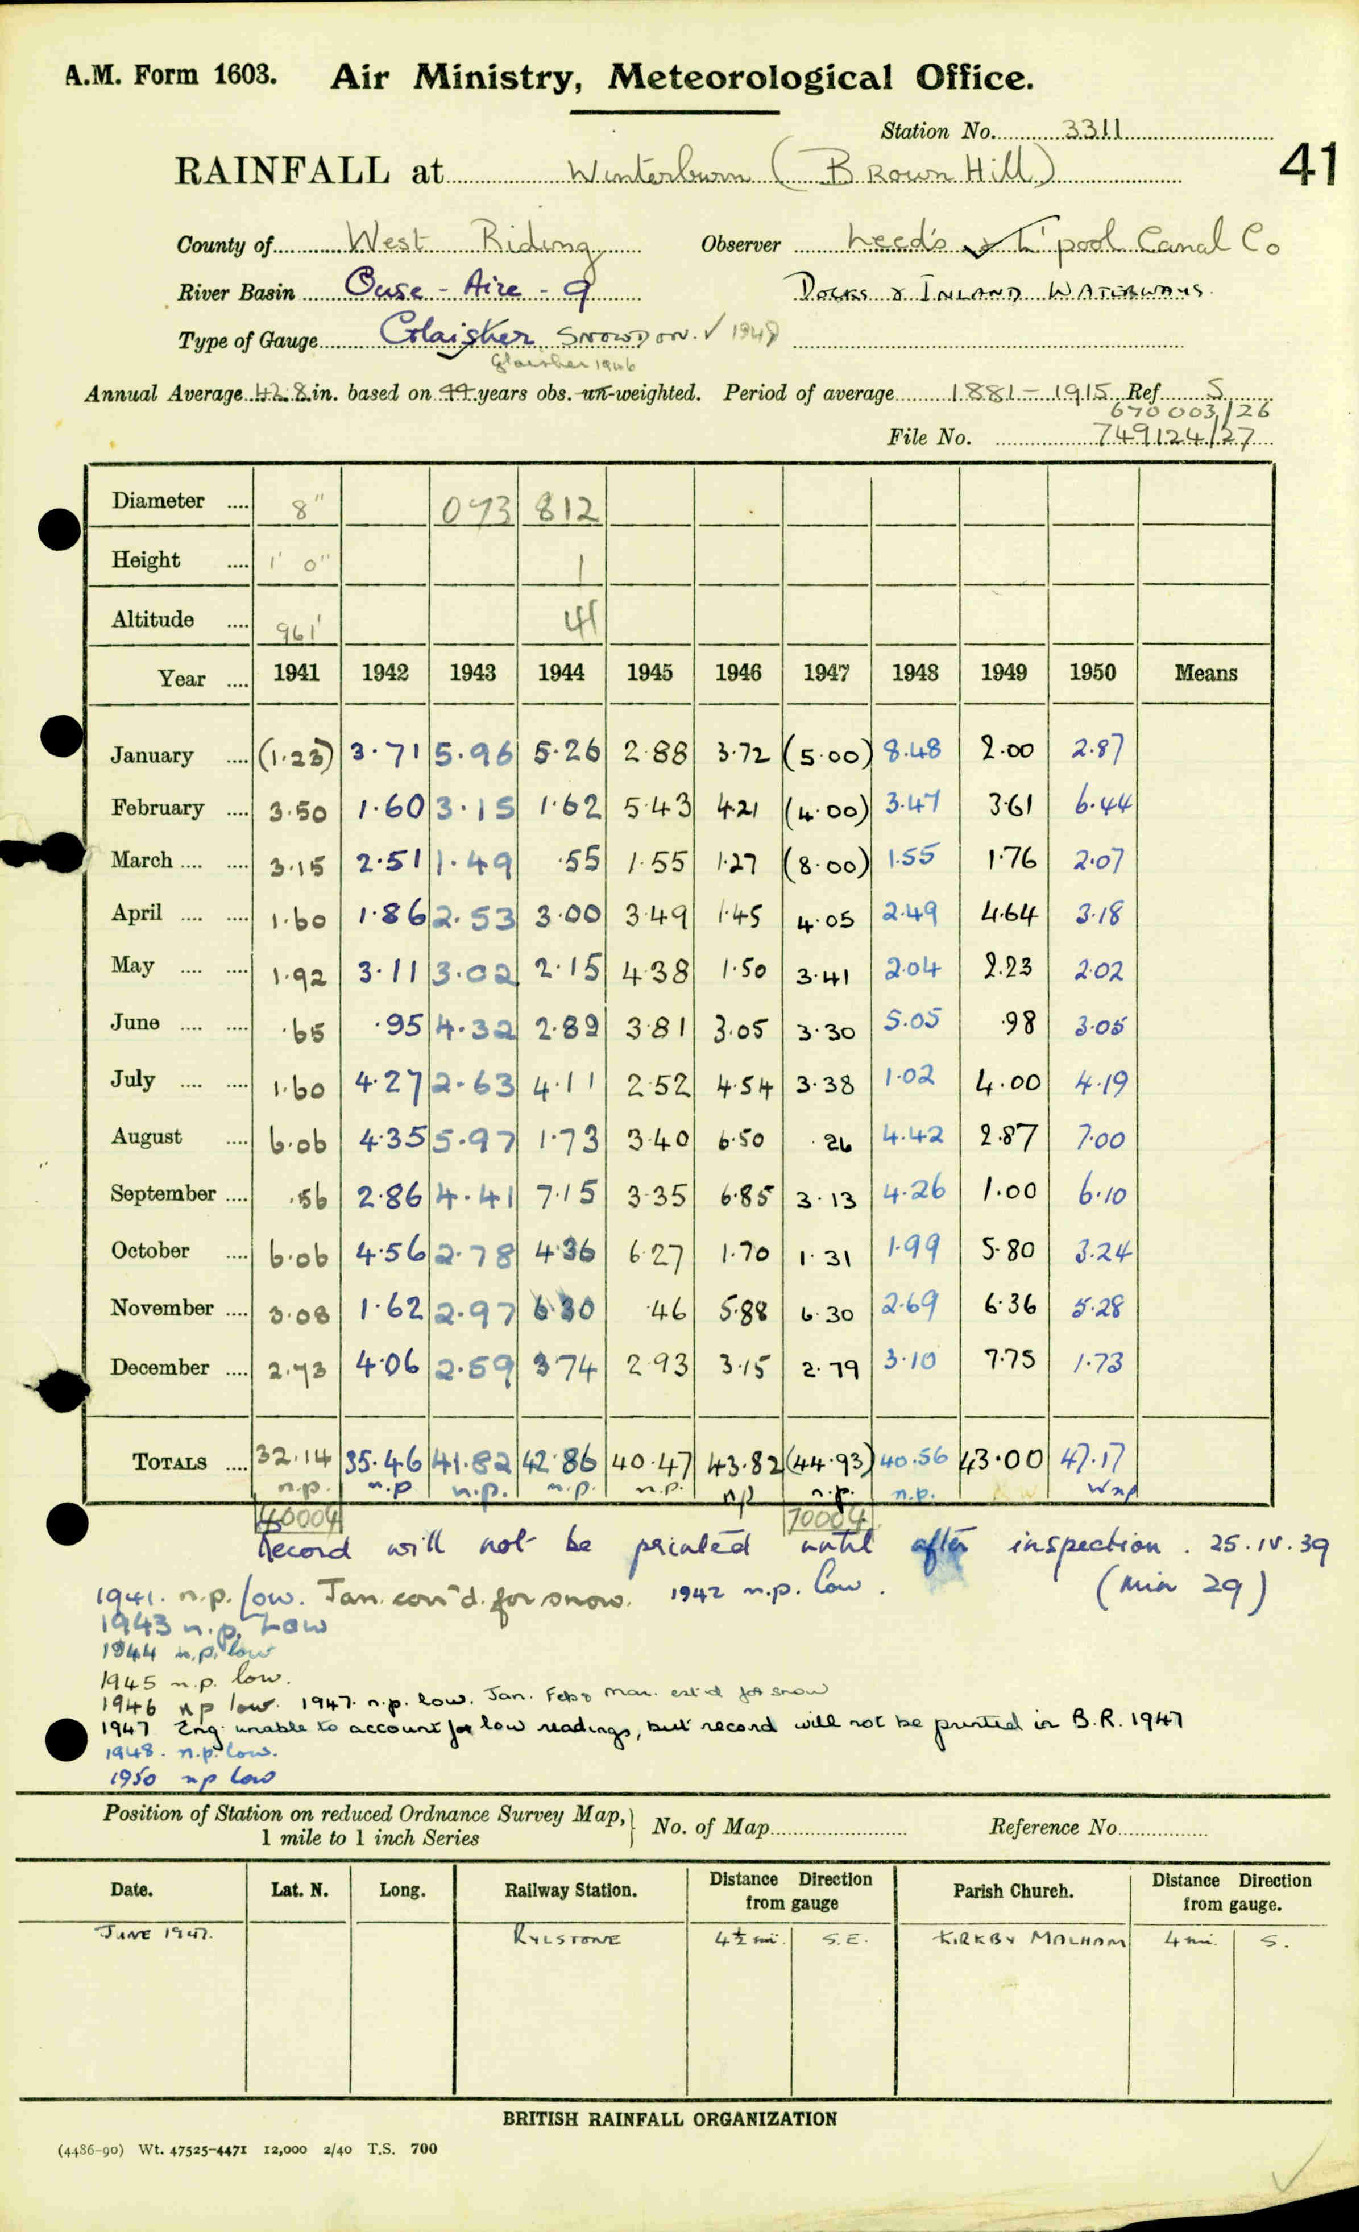 A.M. Form 1603. Air Ministry, Meteorological Office.
Station No. 3311
41
RAINFALL at Winterburn (Brown Hill)
County of West Riding Observer Leeds & L'pool Canal Co
River Basin Ouse - Aire - 9 DOCKS & INLAND WATERWAYS.
Type of Gauge Glaisher SNOWDON. ✓ 1948
Glaisher 1946
Annual Average 42.8 in. based on 44 years obs. un-weighted. Period of average 1881-1915 Ref S
670003/26
File No. 749124/27
Diameter .... 8" 073 812
Height .... 1' 0" 1
Altitude .... 961' 41
Year .... 1941 1942 1943 1944 1945 1946 1947 1948 1949 1950 Means
January .... (1.23) 3.71 5.96 5.26 2.88 3.72 (5.00) 8.48 2.00 2.87
February .... 3.50 1.60 3.15 1.62 5.43 4.21 (4.00) 3.47 3.61 6.44
March .... .... 3.15 2.51 1.49 .55 1.55 1.27 (8.00) 1.55 1.76 2.07
April .... .... 1.60 1.86 2.53 3.00 3.49 1.45 4.05 2.49 4.64 3.18
May .... .... 1.92 3.11 3.02 2.15 4.38 1.50 3.41 2.04 2.23 2.02
June .... .... .65 .95 4.32 2.89 3.81 3.05 3.30 5.05 .98 3.05
July .... .... 1.60 4.27 2.63 4.11 2.52 4.54 3.38 1.02 4.00 4.19
August .... 6.06 4.35 5.97 1.73 3.40 6.50 .26 4.42 2.87 7.00
September .... .56 2.86 4.41 7.15 3.35 6.85 3.13 4.26 1.00 6.10
October .... 6.06 4.56 2.78 4.36 6.27 1.70 1.31 1.99 5.80 3.24
November .... 3.08 1.62 2.97 6.30 .46 5.88 6.30 2.69 6.36 5.28
December .... 2.73 4.06 2.59 3.74 2.93 3.15 2.79 3.10 7.75 1.73
TOTALS .... 32.14 35.46 41.82 42.86 40.47 43.82 (44.93) 40.56 43.00 47.17
n.p. n.p n.p. n.p. n.p. np n.p. n.p. W np
40004 70004
Record will not be printed until after inspection. 25.IV.39
(Min 29)
1941. n.p. low. Jan. con'd. for snow. 1942 n.p. low.
1943 n.p. Low
1944 n.p. low
1945 n.p. low.
1946 np low. 1947. n.p. low. Jan. Feb & Mar. est'd for snow
1947 Eng. unable to account for low readings, but record will not be printed in B.R. 1947
1948. n.p. low.
1950 np low
Position of Station on reduced Ordnance Survey Map, 1 mile to 1 inch Series } No. of Map Reference No.
Date. Lat. N. Long. Railway Station. Distance Direction from gauge Parish Church. Distance Direction from gauge.
JUNE 1947. RYLSTONE 4½ mi. S.E. KIRKBY MALHAM 4 mi. S.
BRITISH RAINFALL ORGANIZATION
(4486-90) Wt. 47525-4471 12,000 2/40 T.S. 700